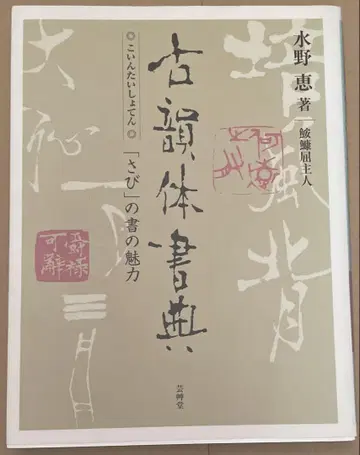 水野 恵 著
鮟鱇屈主人
古韻体書典
こいんたいしょてん
「さび」の書の魅力
爵禄
可辭
芸艸堂